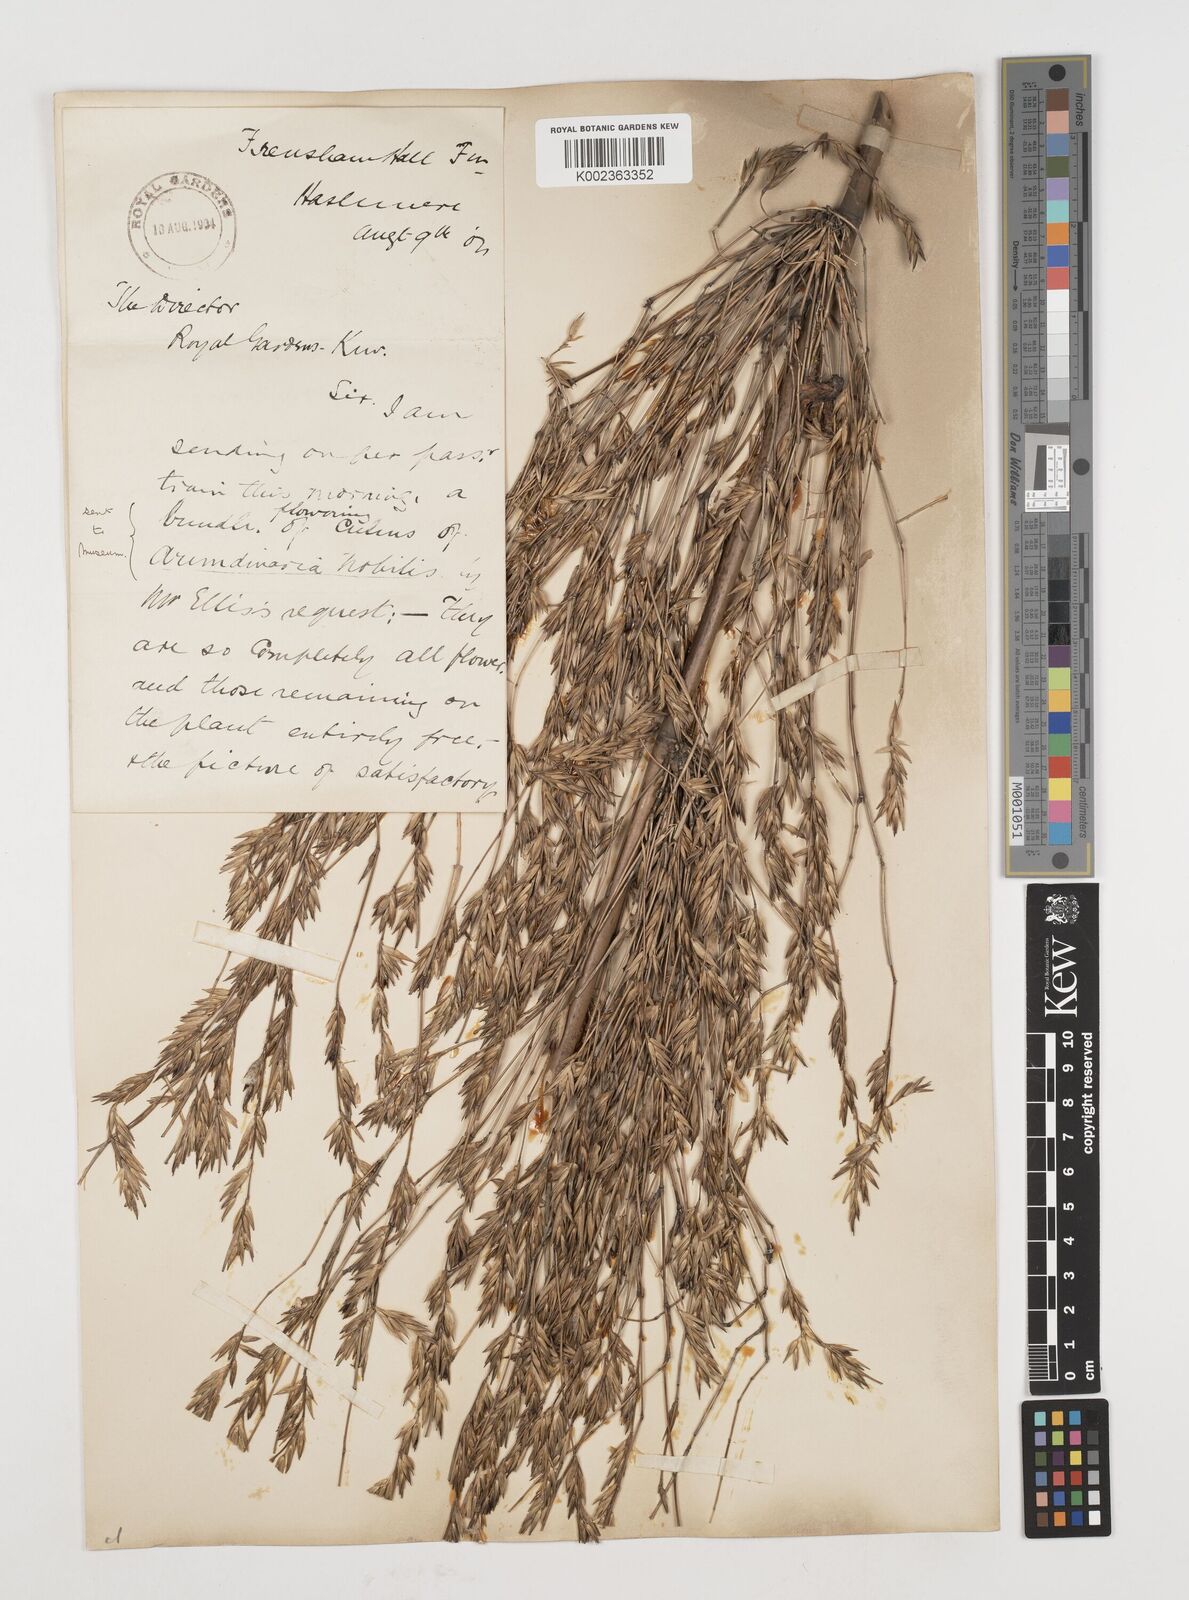 ROYAL BOTANIC GARDENS KEW
K002363352
Frensham Hall
Haslemere
Augt 9th
ROYAL GARDENS
10 AUG. 1904
The Director
Royal Gardens - Kew.
Sir. I am
sending on per passr
train this morning, a
flowering
bundle. of Culms of
Arundinaria Nobilis by
Mr Ellis's request: — They
are so Completely all flower.
and those remaining on
the plant entirely free. -
& the picture of satisfactory
sent
to
museum.
cl
inches
D50 Illuminant, 2 degree observer
Density
Don Williams
All values are averages
centimeters
M001051
Royal Botanic Gardens
Kew
0 1 2 3 4 5 6 7 8 9 10
cm
copyright reserved